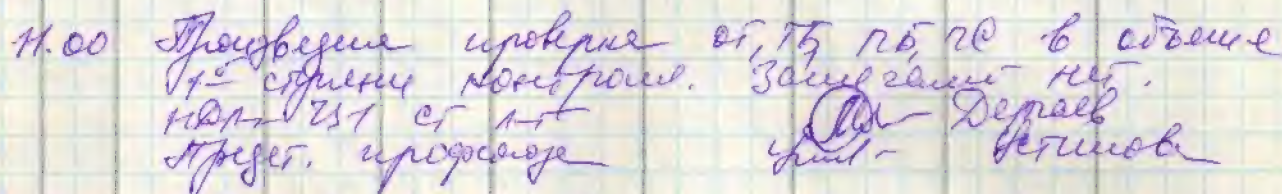 11.00 Произведена проверка ОТ, ТБ, ПБ, ПС в объеме
1ой ступени контроля. Замечаний нет.
Дергаев
Предст. профсоюза Устинова